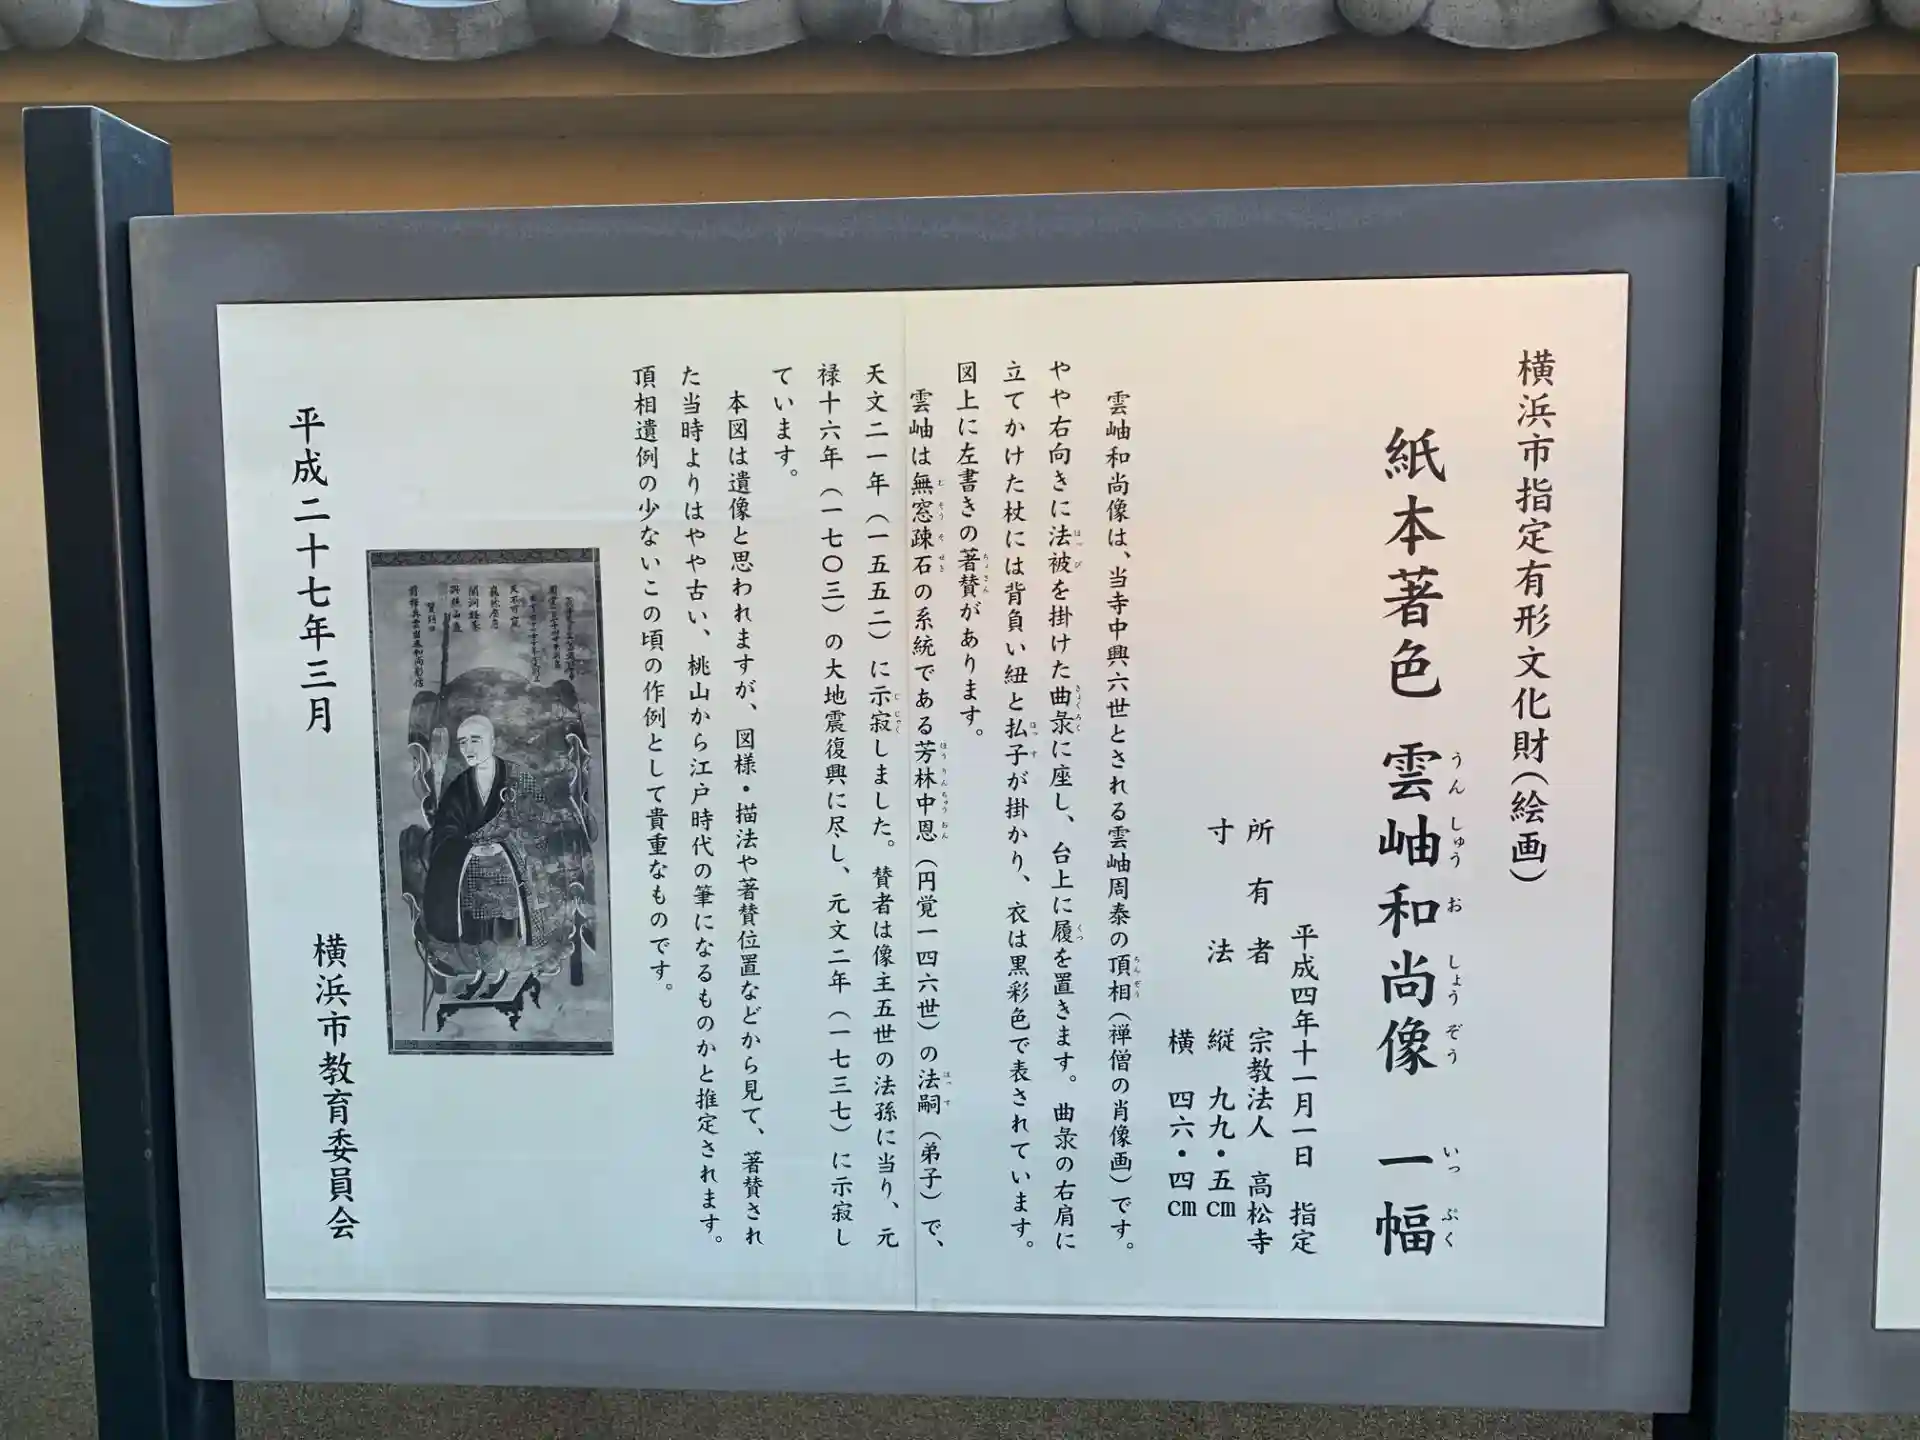 横浜市指定有形文化財（絵画）
紙本著色 雲岫和尚像 一幅
うんしゅうおしょうぞう いっぷく
平成四年十一月一日 指定
所有者 宗教法人 高松寺
寸法 縦 九九・五cm
横 四六・四cm
雲岫和尚像は、当寺中興六世とされる雲岫周泰の頂相（禅僧の肖像画）です。
やや右向きに法被を掛けた曲彔に座し、台上に履を置きます。曲彔の右肩に
立てかけた杖には背負い紐と払子が掛かり、衣は黒彩色で表されています。
図上に左書きの著賛があります。
雲岫は無窓疎石の系統である芳林中恩（円覚一四六世）の法嗣（弟子）で、
天文二一年（一五五二）に示寂しました。賛者は像主五世の法孫に当り、元
禄十六年（一七〇三）の大地震復興に尽し、元文二年（一七三七）に示寂し
ています。
本図は遺像と思われますが、図様・描法や著賛位置などから見て、著賛され
た当時よりはやや古い、桃山から江戸時代の筆になるものかと推定されます。
頂相遺例の少ないこの頃の作例として貴重なものです。
平成二十七年三月
横浜市教育委員会